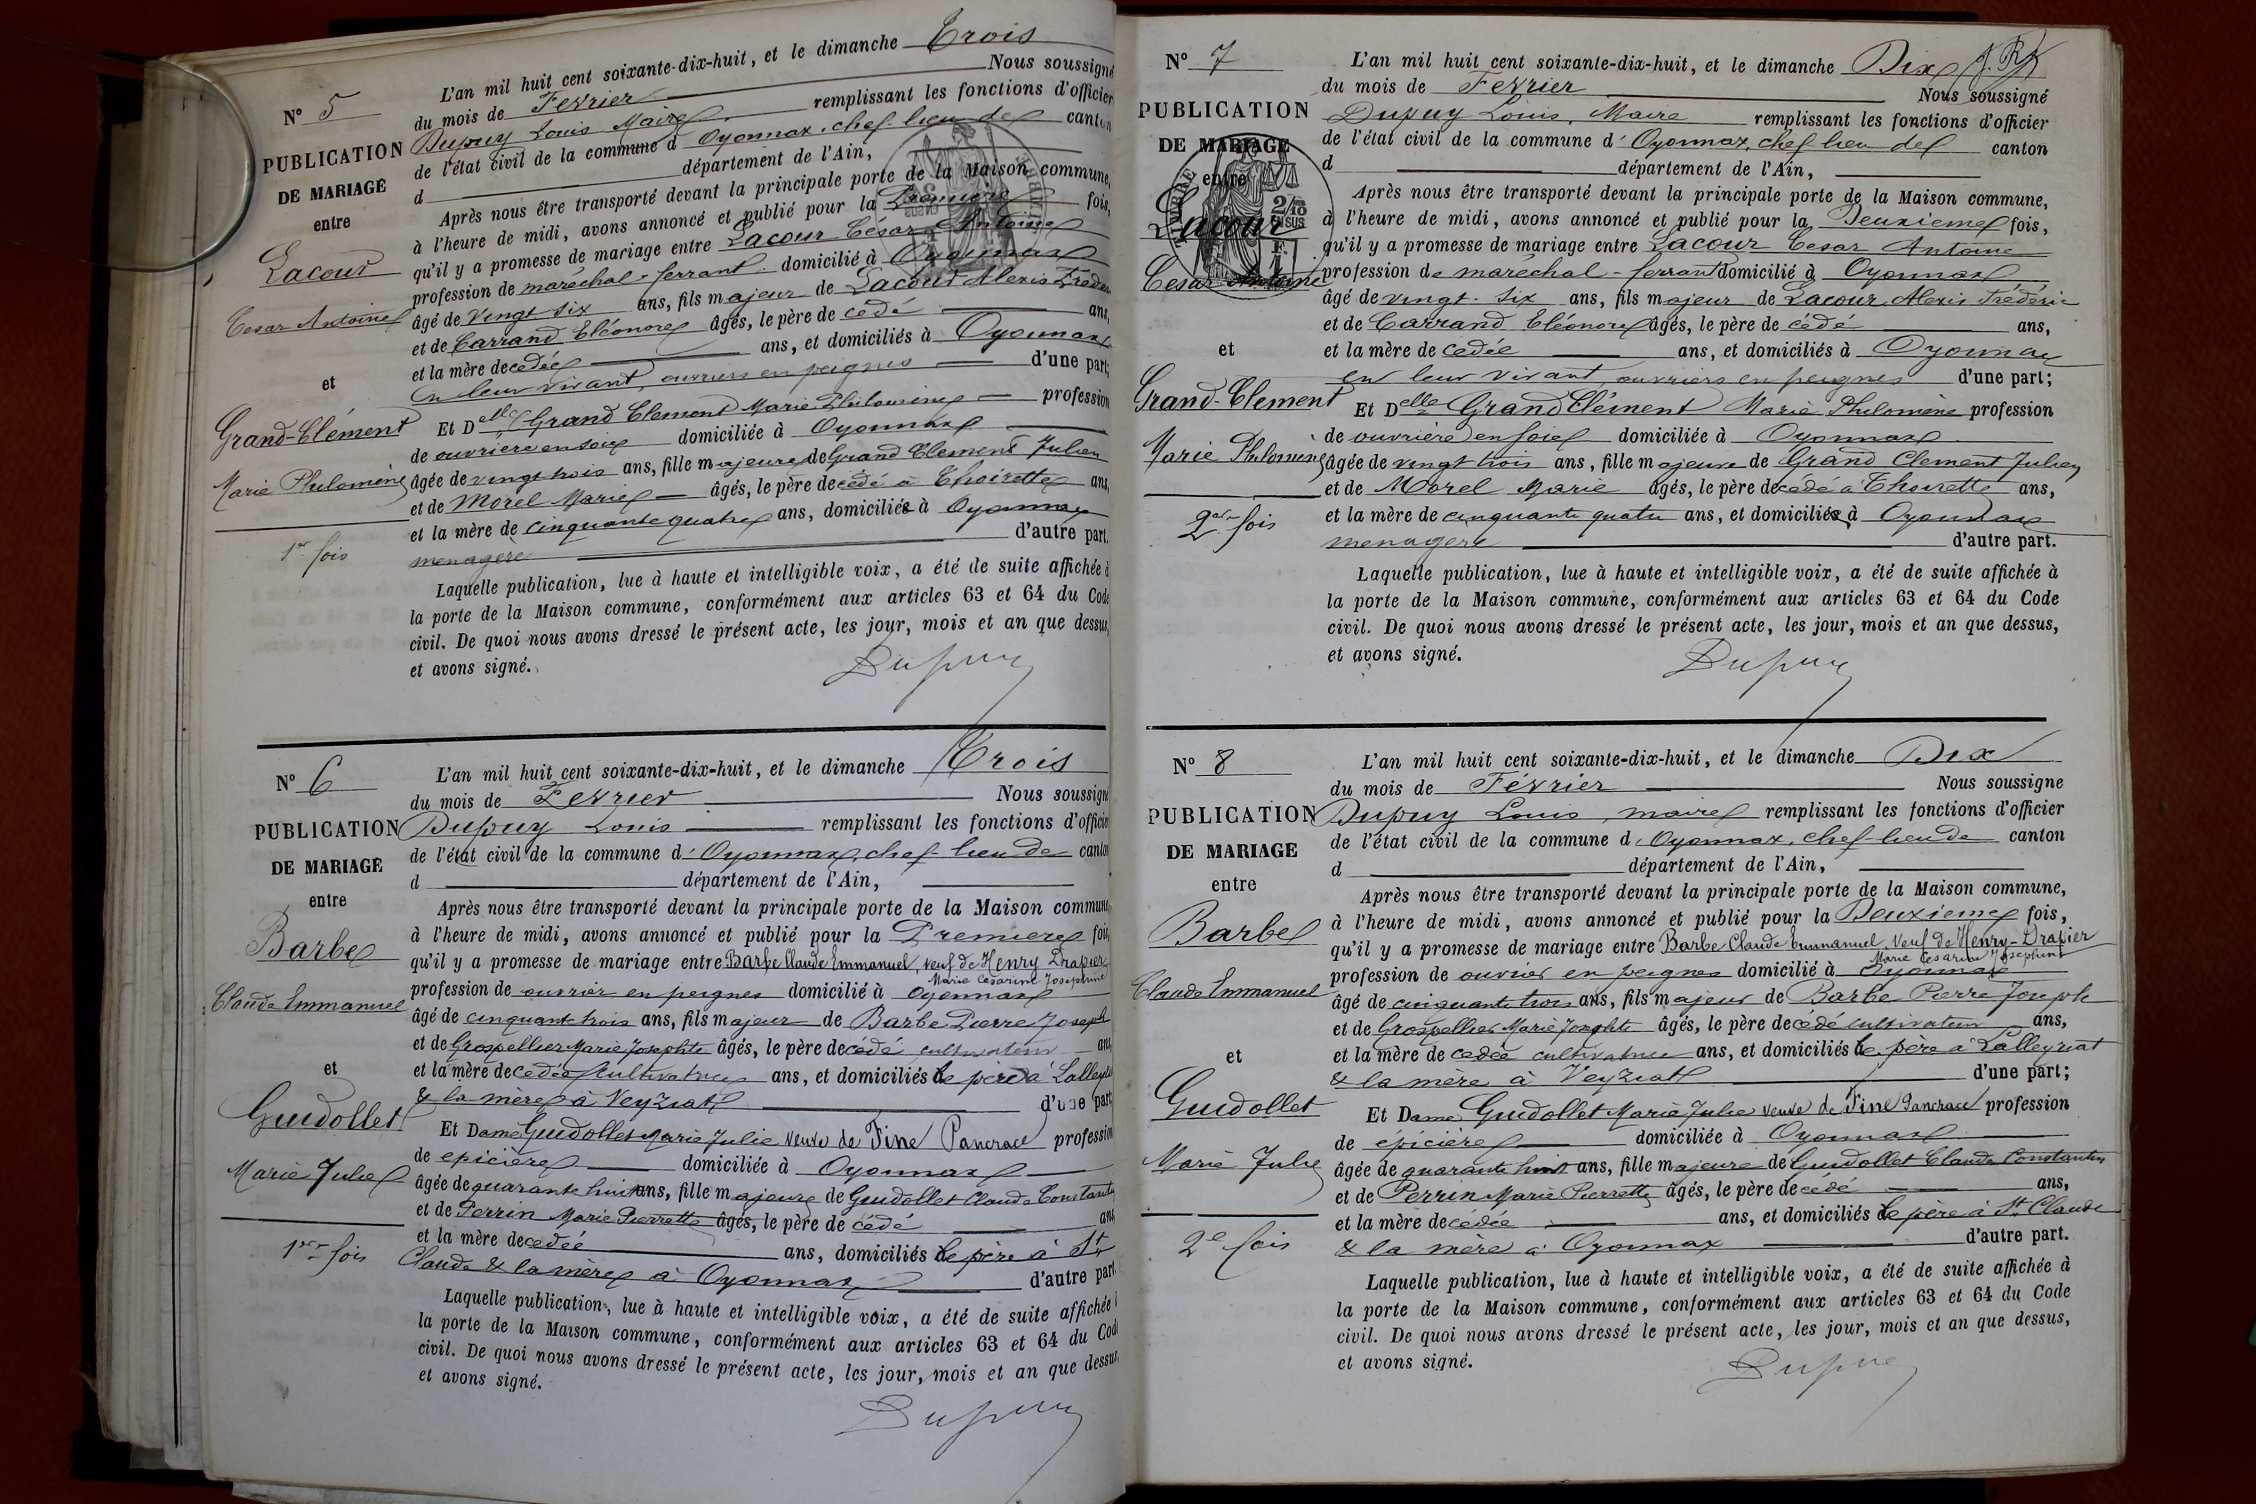 N° 5
PUBLICATION
DE MARIAGE
entre
Lacour
Cesar Antoine
et
Grand-Clément
Marie Philomène
1er fois
L'an mil huit cent soixante-dix-huit, et le dimanche Trois
du mois de Fevrier Nous soussigné
Dupuy Louis Maire remplissant les fonctions d'officier
de l'état civil de la commune d'Oyonnax, chef-lieu de canton
d département de l'Ain,
Après nous être transporté devant la principale porte de la Maison commune,
à l'heure de midi, avons annoncé et publié pour la Première fois,
qu'il y a promesse de mariage entre Lacour César Antoine
profession de maréchal-ferrant domicilié à Oyonnax
âgé de vingt six ans, fils majeur de Lacour Alexis Fréderic
et de Carrand Eléonore âgés, le père de cédé ans,
et la mère decedée ans, et domiciliés à Oyonnax
en leur vivant, ouvriers en peignes d'une part;
Et Delle Grand Clement Marie Philomène profession
de ouvrière en soie domiciliée à Oyonnax
âgée de vingt trois ans, fille majeure de Grand Clement Julien
et de Morel Marie âgés, le père decédé à Thoirette ans,
et la mère de cinquante quatre ans, domiciliés à Oyonnax
menagere d'autre part.
Laquelle publication, lue à haute et intelligible voix, a été de suite affichée à
la porte de la Maison commune, conformément aux articles 63 et 64 du Code
civil. De quoi nous avons dressé le présent acte, les jour, mois et an que dessus,
et avons signé.
Dupuy
N° 6
PUBLICATION
DE MARIAGE
entre
Barbe
Claude Emmanuel
et
Guidollet
Marie Julie
1er fois
L'an mil huit cent soixante-dix-huit, et le dimanche Trois
du mois de Fevrier Nous soussigné
Dupuy Louis remplissant les fonctions d'officier
de l'état civil de la commune d'Oyonnax, chef-lieu de canton
d département de l'Ain,
Après nous être transporté devant la principale porte de la Maison commune
à l'heure de midi, avons annoncé et publié pour la Premiere fois,
qu'il y a promesse de mariage entre Barbe Claude Emmanuel, veuf de Henry Drapier
Marie Césarine Josephine
profession de ouvrier en peignes domicilié à Oyonnax
âgé de cinquante trois ans, fils majeur de Barbe Pierre Joseph
et de Grospellier Marie Josephte âgés, le père de cédé cultivateur ans
et la mère de cedée cultivatrice ans, et domiciliés le père à Lalleyriat
& la mère à Veyziat d'une part
Et Dame Guidollet Marie Julie veuve de Fine Pancrace profession
de epicière domiciliée à Oyonnax
âgée de quarante huit ans, fille majeure de Guidollet Claude Constantin
et de Perrin Marie Pierrette âgés, le père de cédé ans
et la mère decedée ans, domiciliés le père à St
Claude & la mère à Oyonnax d'autre part
Laquelle publication, lue à haute et intelligible voix, a été de suite affichée à
la porte de la Maison commune, conformément aux articles 63 et 64 du Code
civil. De quoi nous avons dressé le présent acte, les jour, mois et an que dessus
et avons signé.
Dupuy
N° 7
PUBLICATION
DE MARIAGE
entre
Lacour
Cesar Antoine
et
Grand-Clement
Marie Philomène
2e fois
L'an mil huit cent soixante-dix-huit, et le dimanche Dix
du mois de Fevrier Nous soussigné
Dupuy Louis, Maire remplissant les fonctions d'officier
de l'état civil de la commune d'Oyonnax, chef lieu de canton
d département de l'Ain,
Après nous être transporté devant la principale porte de la Maison commune,
à l'heure de midi, avons annoncé et publié pour la Deuxieme fois,
qu'il y a promesse de mariage entre Lacour Cesar Antoine
profession de maréchal-ferrant domicilié à Oyonnax
âgé de vingt-six ans, fils majeur de Lacour Alexis Fréderic
et de Carrand Eléonore âgés, le père de cédé ans,
et la mère de cedée ans, et domiciliés à Oyonnax
en leur vivant, ouvriers en peignes d'une part;
Et Delle Grand Clément Marie Philomène profession
de ouvrière en soie domiciliée à Oyonnax
âgée de vingt trois ans, fille majeure de Grand Clement Julien
et de Morel Marie âgés, le père decédé à Thoirette ans,
et la mère de cinquante quatre ans, et domiciliés à Oyonnax
menagere d'autre part.
Laquelle publication, lue à haute et intelligible voix, a été de suite affichée à
la porte de la Maison commune, conformément aux articles 63 et 64 du Code
civil. De quoi nous avons dressé le présent acte, les jour, mois et an que dessus,
et avons signé.
Dupuy
N° 8
PUBLICATION
DE MARIAGE
entre
Barbe
Claude Emmanuel
et
Guidollet
Marie Julie
2e fois
L'an mil huit cent soixante-dix-huit, et le dimanche Dix
du mois de Février Nous soussigné
Dupuy Louis, maire remplissant les fonctions d'officier
de l'état civil de la commune d'Oyonnax, chef-lieu de canton
d département de l'Ain,
Après nous être transporté devant la principale porte de la Maison commune,
à l'heure de midi, avons annoncé et publié pour la Deuxieme fois,
qu'il y a promesse de mariage entre Barbe Claude Emmanuel, veuf de Henry-Drapier
Marie Césarine Josephine
profession de ouvrier en peignes domicilié à Oyonnax
âgé de cinquante trois ans, fils majeur de Barbe Pierre Joseph
et de Grospellier Marie Josephte âgés, le père de cédé cultivateur ans,
et la mère de cedée cultivatrice ans, et domiciliés le père à Lalleyriat
& la mère à Veyziat d'une part;
Et Dame Guidollet Marie Julie veuve de Fine Pancrace profession
de épicière domiciliée à Oyonnax
âgée de quarante huit ans, fille majeure de Guidollet Claude Constantin
et de Perrin Marie Pierrette âgés, le père de cédé ans,
et la mère decédée ans, et domiciliés le père à St Claude
& la mère à Oyonnax d'autre part.
Laquelle publication, lue à haute et intelligible voix, a été de suite affichée à
la porte de la Maison commune, conformément aux articles 63 et 64 du Code
civil. De quoi nous avons dressé le présent acte, les jour, mois et an que dessus,
et avons signé.
Dupuy